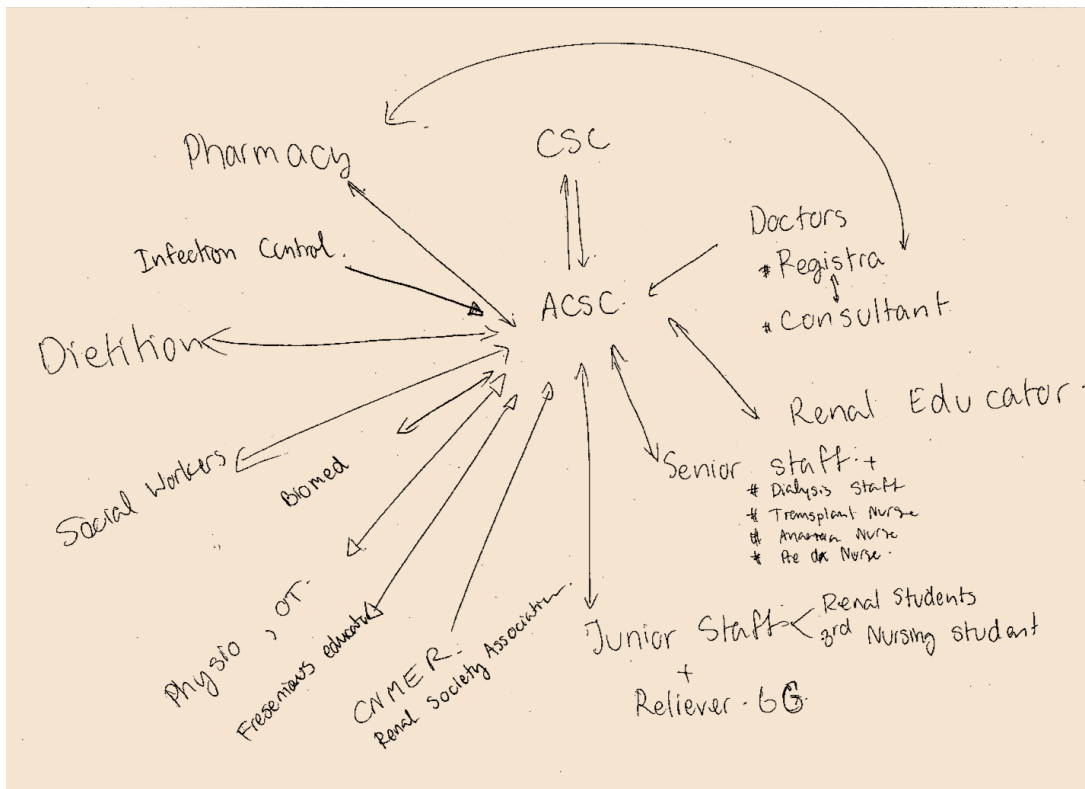 CSC
Pharmacy
Doctors
* Registra
* Consultant
Infection Control.
ACSC.
Dietition
Renal Educator.
Senior staff: +
# Dialysis Staff
# Transplant Nurse
# Anaemia Nurse
* Pre dx Nurse.
Social Workers
Biomed
Physio, OT.
Fresenious educator
CNMER.
Renal Society Association.
Junior Staff
Renal Students
3rd Nursing student
+
Reliever. 6G.